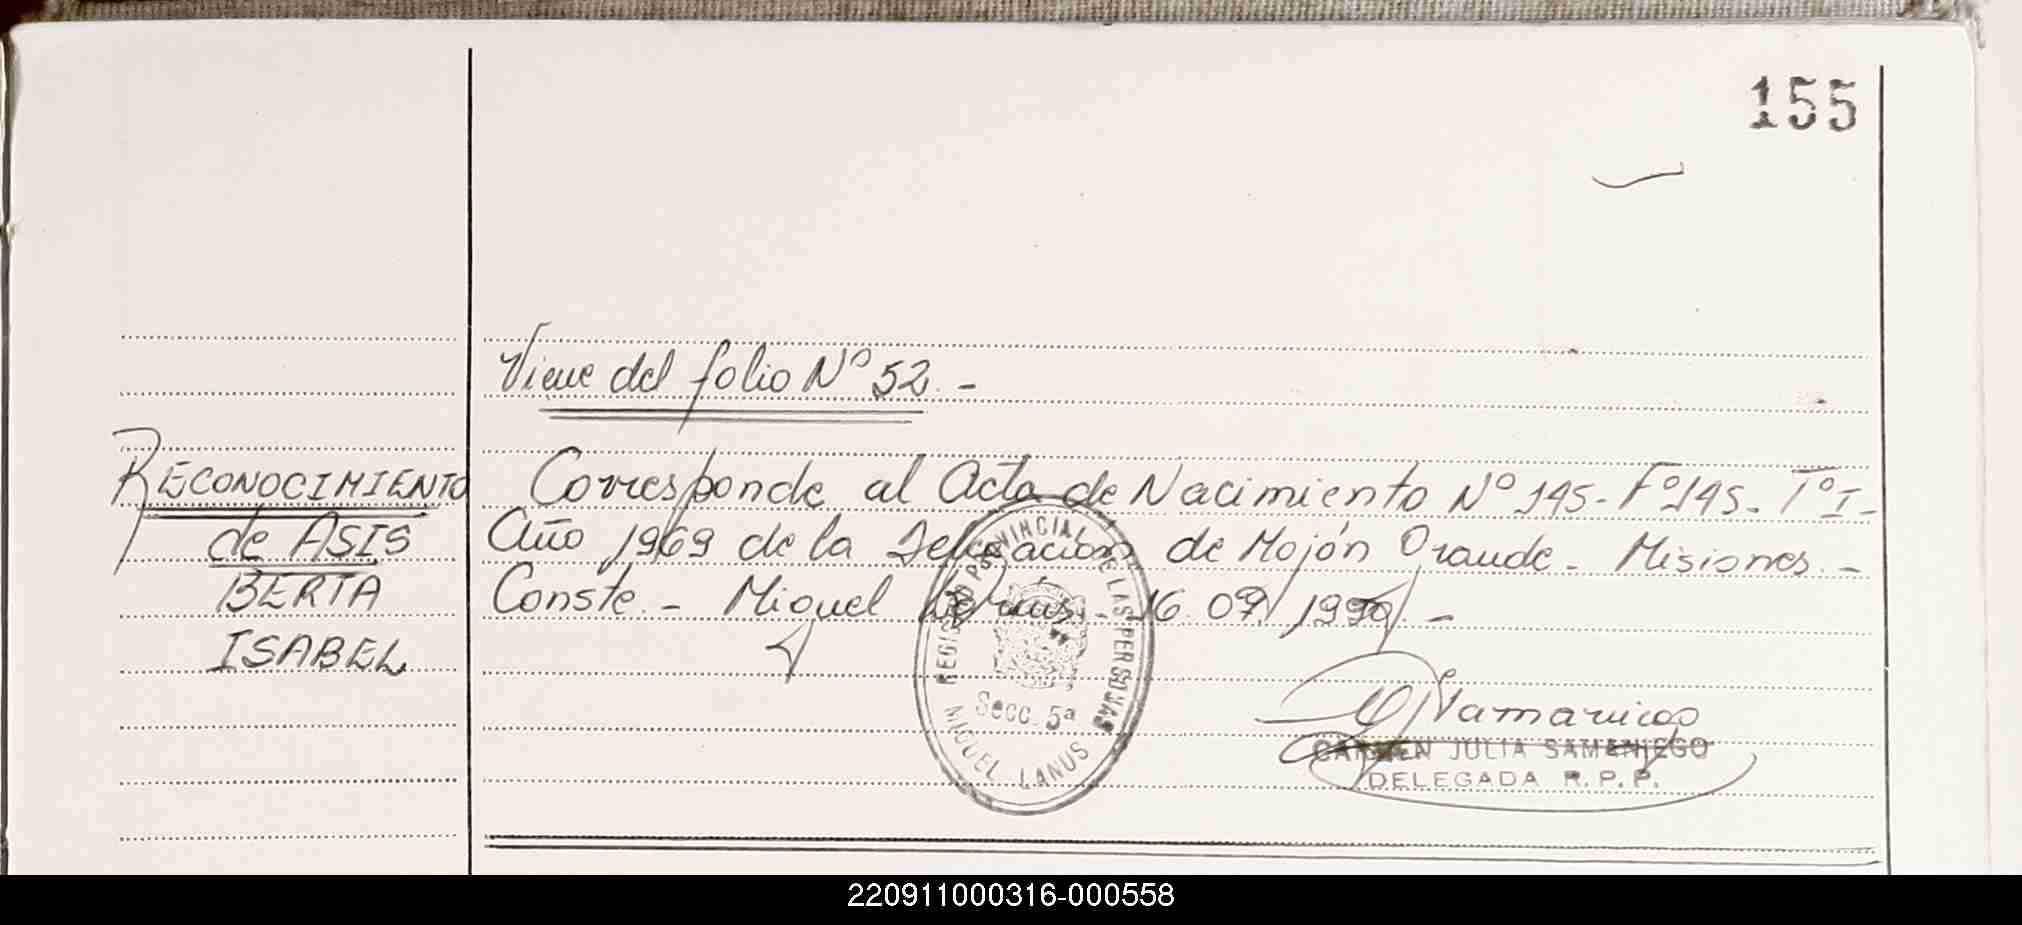 155
Viene del folio Nº 52. -
RECONOCIMIENTO
de ASIS
BERTA
ISABEL
Corresponde al Acta de Nacimiento Nº 145 - Fº 145 - Tº I -
Año 1969 de la Delegación de Mojón Grande - Misiones. -
Conste. - Miguel Lanús, 16. 07 / 1990. -
REGISTRO PROVINCIAL DE LAS PERSONAS
Secc. 5ª
MIGUEL LANUS
CARMEN JULIA SAMANIEGO
DELEGADA R.P.P.
220911000316-000558